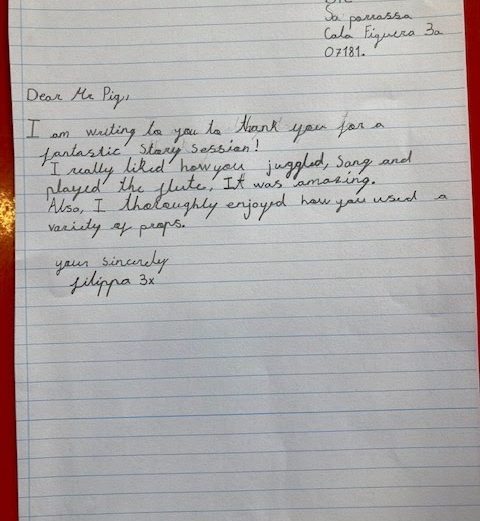 Sa porrassa
Cala Figuera 3a
07181.
Dear Mr Pig,
I am writing to you to thank you for a
fantastic story session!
I really liked how you juggled, sang and
played the flute, It was amazing.
Also, I thoroughly enjoyed how you used a
variety of props.
your sincerely
filippa 3x